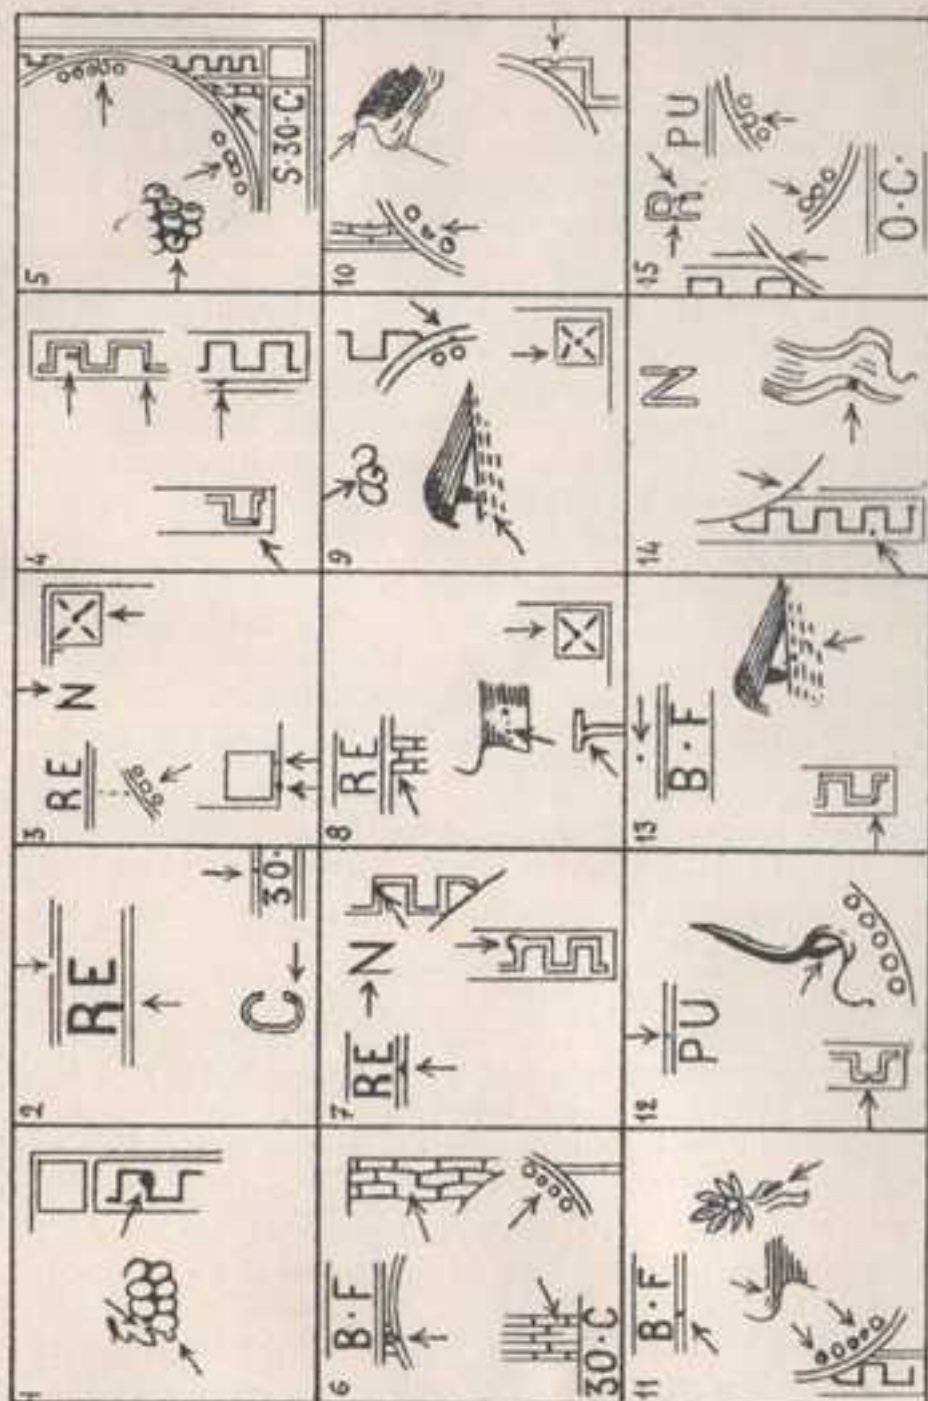 1
2
RE
C
30·
3
RE
N
4
5
S·30·C·
6
B·F
30·C
7
RE
N
8
RE
9
10
11
B·F
12
PU
13
B·F
14
N
15
R
PU
O·C·